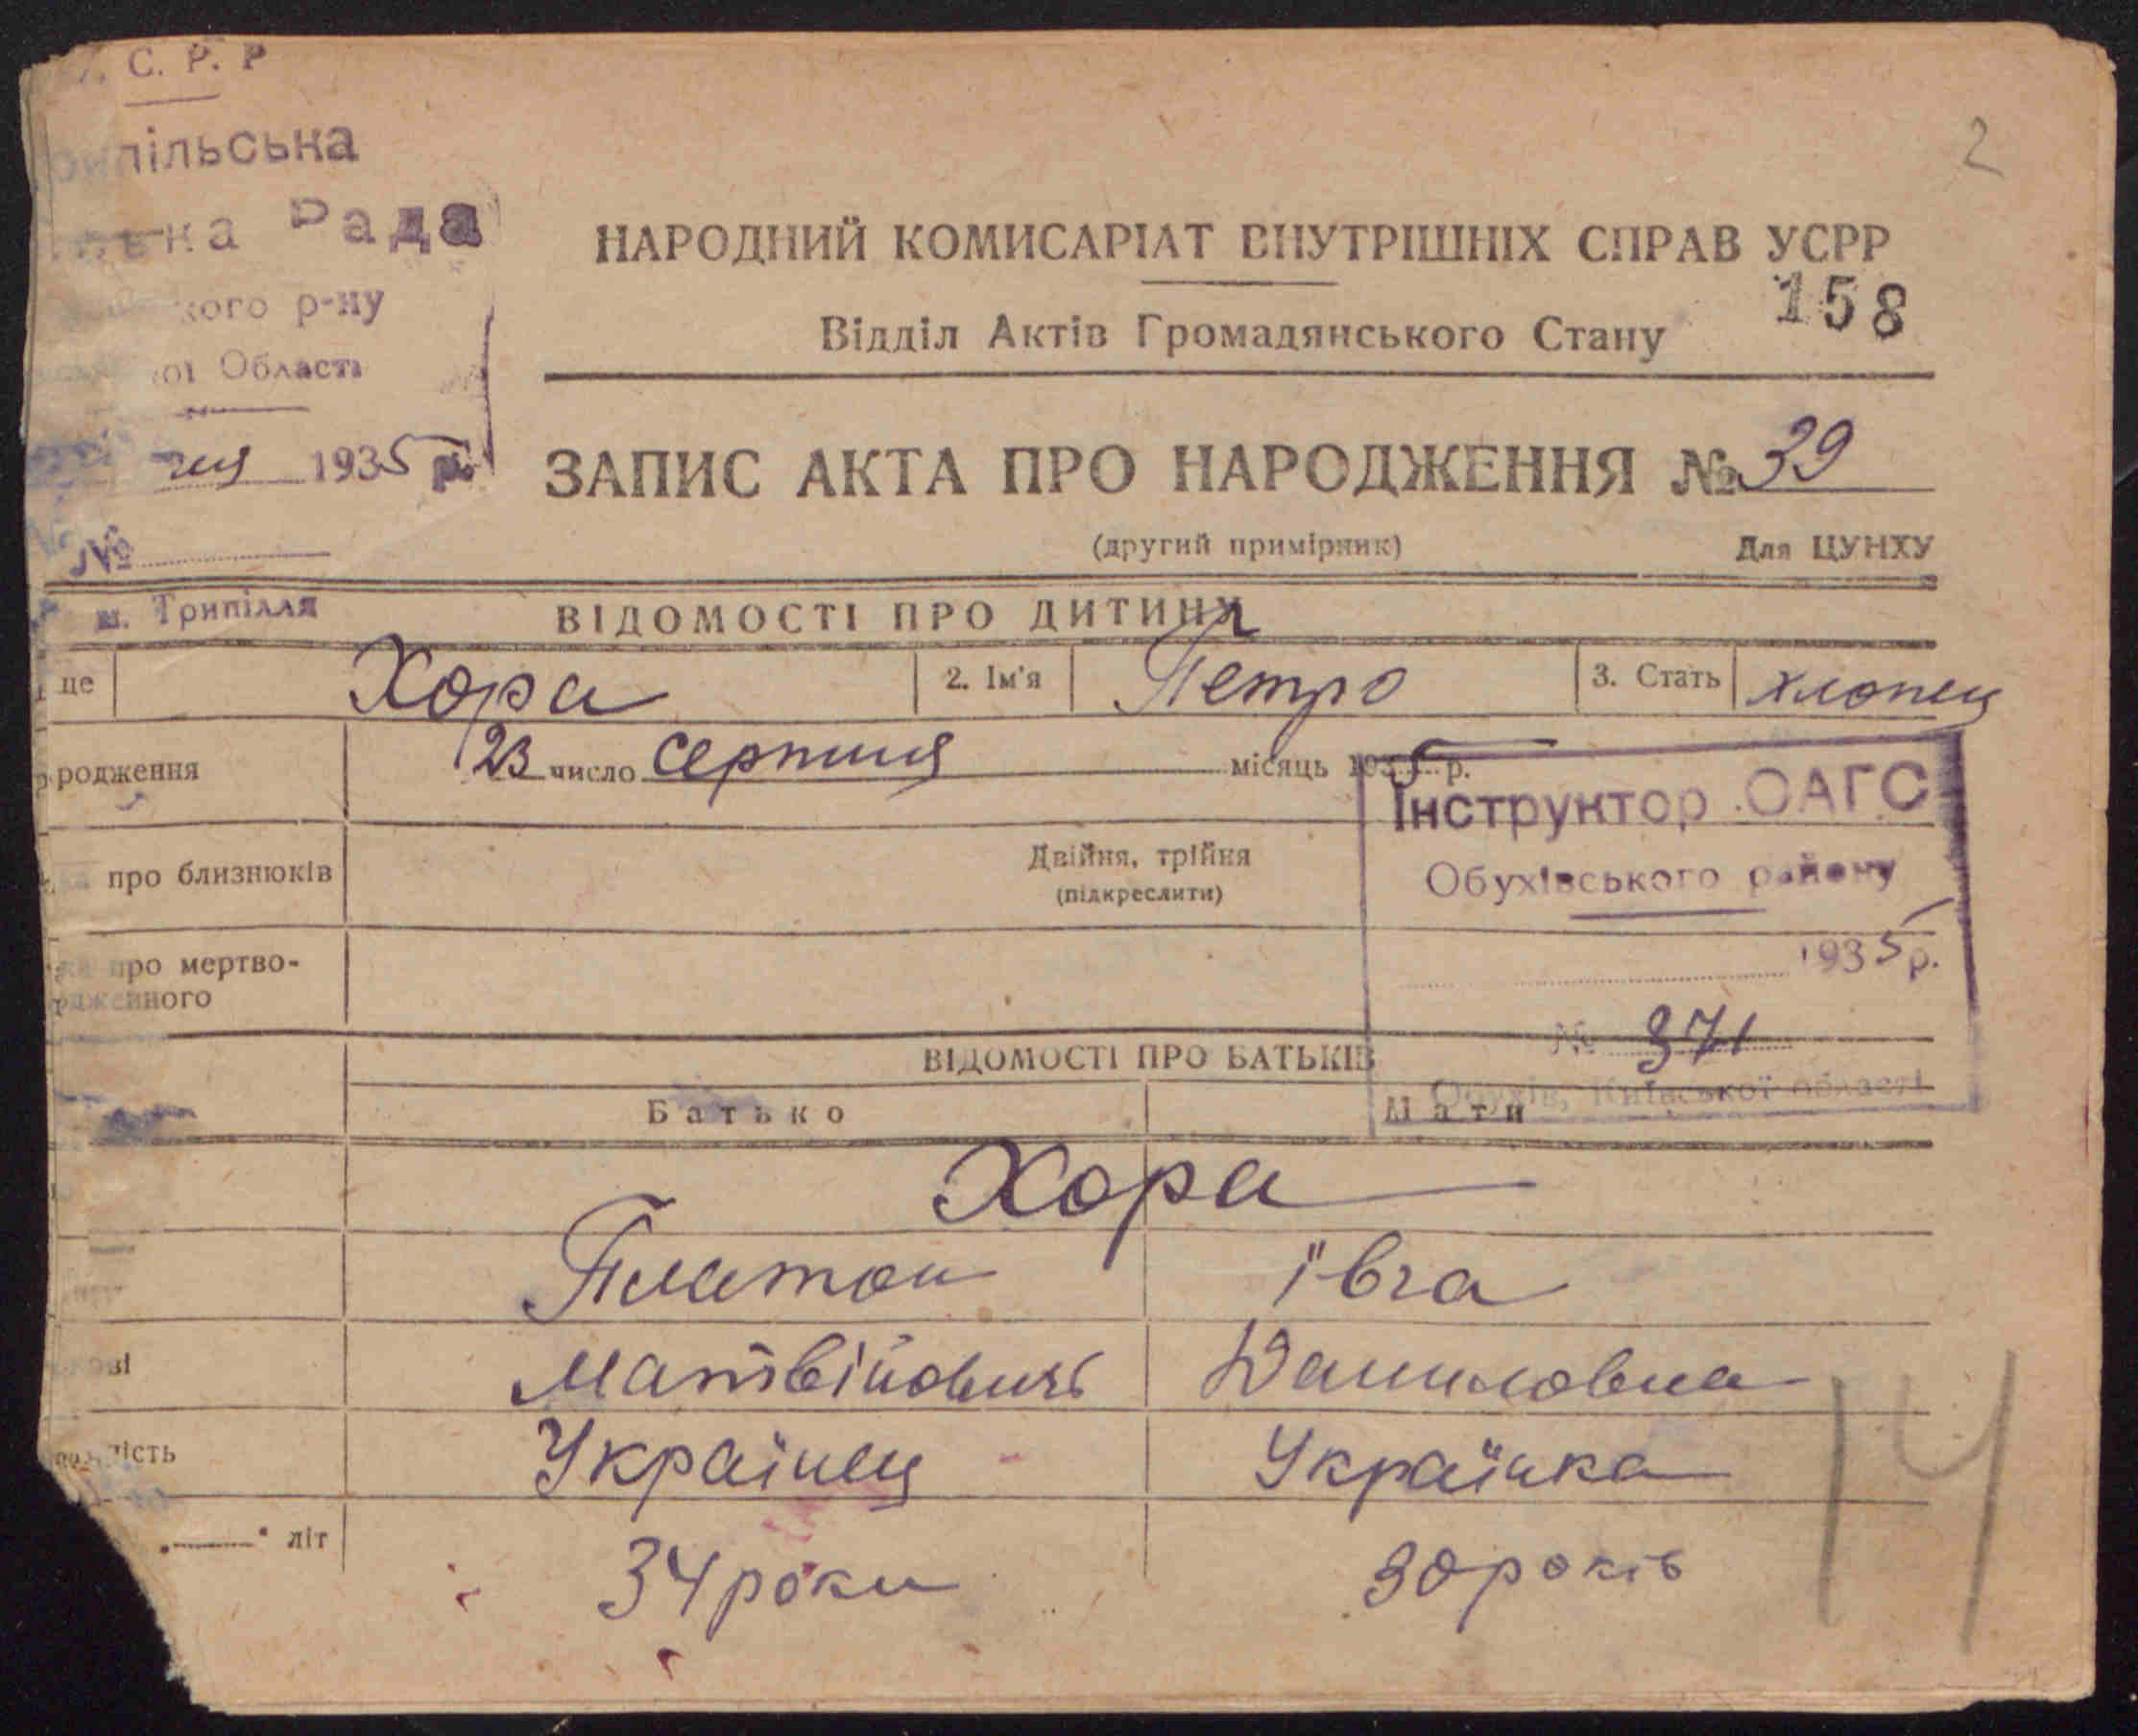 С. Р. Р
пільська
ка Рада
кого р-ну
ої Області
1935 р.
№
м. Трипілля
2
НАРОДНИЙ КОМИСАРІАТ ВНУТРІШНІХ СПРАВ УСРР
158
Відділ Актів Громадянського Стану
ЗАПИС АКТА ПРО НАРОДЖЕННЯ № 39
(другий примірник) Для ЦУНХУ
ВІДОМОСТІ ПРО ДИТИНУ
це Хора 2. Ім'я Петро 3. Стать хлопець
родження 23 число серпня місяць 1935 р.
Інструктор ОАГС
про близнюків Двійня, трійня
(підкреслити)
Обухівського району
1935 р.
про мертво-
рожденного
№ 371
Обухів, Київської області
ВІДОМОСТІ ПРО БАТЬКІВ
Батько Мати
Хора
Платон Ївга
ові Матвійович Даниловна
ність Українец Українка
літ 34 роки 30 років
14